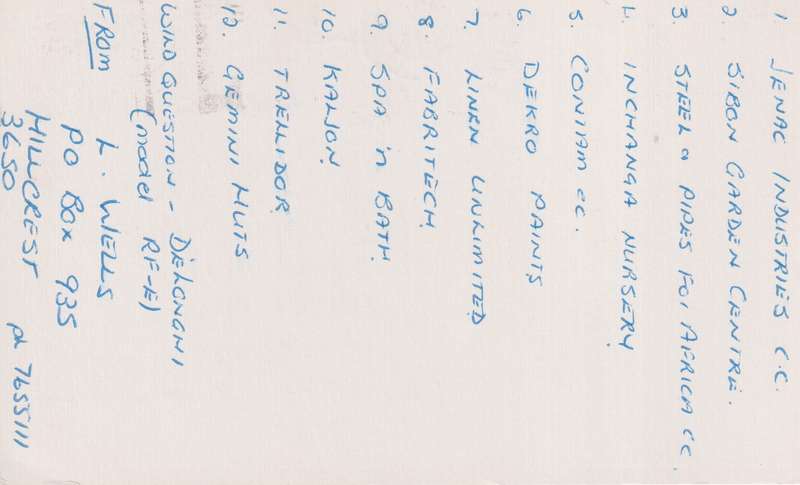 1 JENAC INDUSTRIES C.C.
2. SIBON GARDEN CENTRE.
3. STEEL & PIPES FOR AFRICA CC.
4. INCHANGA NURSERY
5. CONIAM CC.
6. DEKRO PAINTS
7. LINEN UNLIMITED
8. FABRITECH
9. SPA n BATH
10. KALLON
11. TRELLIDOR
12. GEMINI HUTS
WIND QUESTION - DELONGHI
(model RF-E)
FROM L. WELLS
PO BOX 935
HILLCREST
3650 ph 7655111